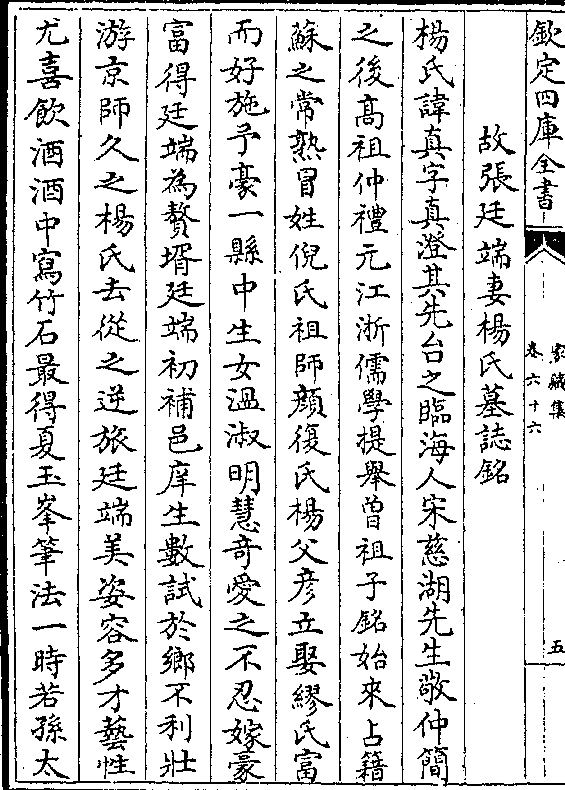 欽定四庫全書
家藏集
卷六十六
五
故張廷端妻楊氏墓誌銘
楊氏諱真字真澄其先台之臨海人宋慈湖先生敬仲簡
之後高祖仲禮元江浙儒學提舉曾祖子銘始來占籍
蘇之常熟冒姓倪氏祖師顔復氏楊父彦立娶繆氏富
而好施予豪一縣中生女温淑明慧竒愛之不忍嫁豪
富得廷端為贅壻廷端初補邑庠生數試於鄉不利壯
游京師久之楊氏去從之逆旅廷端美姿容多才藝性
尤喜飲酒酒中寫竹石最得夏玉峯筆法一時若孫太